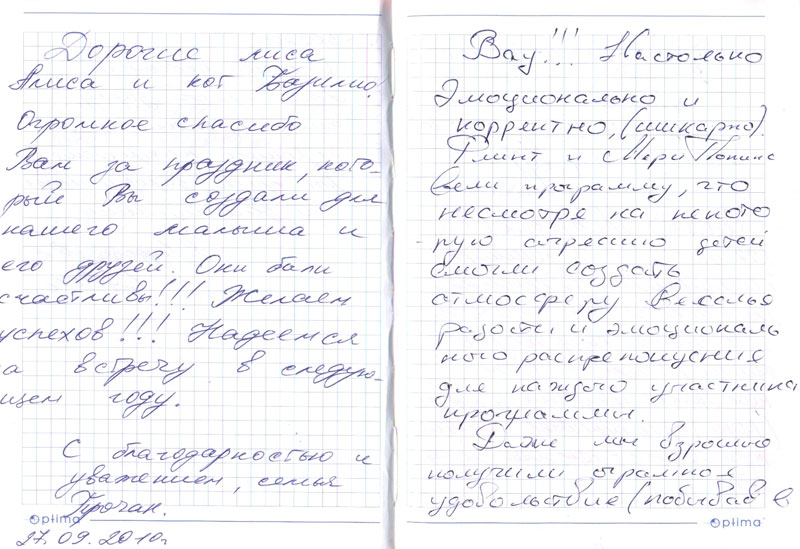 Дорогие лиса
Алиса и кот Базилио!
Огромное спасибо
Вам за праздник, кото-
рый Вы создали для
нашего малыша и
его друзей. Они были
счастливы!!! Желаем
успехов!!! Надеемся
на встречу в следую-
щем году.
С благодарностью и
уважением, семья
Прочан.
Optima
27.09.2010г
Вау!!! Настолько
эмоционально и
корректно, (шикарно).
Флинт и Мери Попинс
вели программу, что
несмотря на некото
-рую агрессию детей
смогли создать
атмосферу веселья
радости и эмоциональ
ного распрепощения
для каждого участника
программы.
Даже мы взрослые
получили огромное
удовольствие (побывав в
Optima